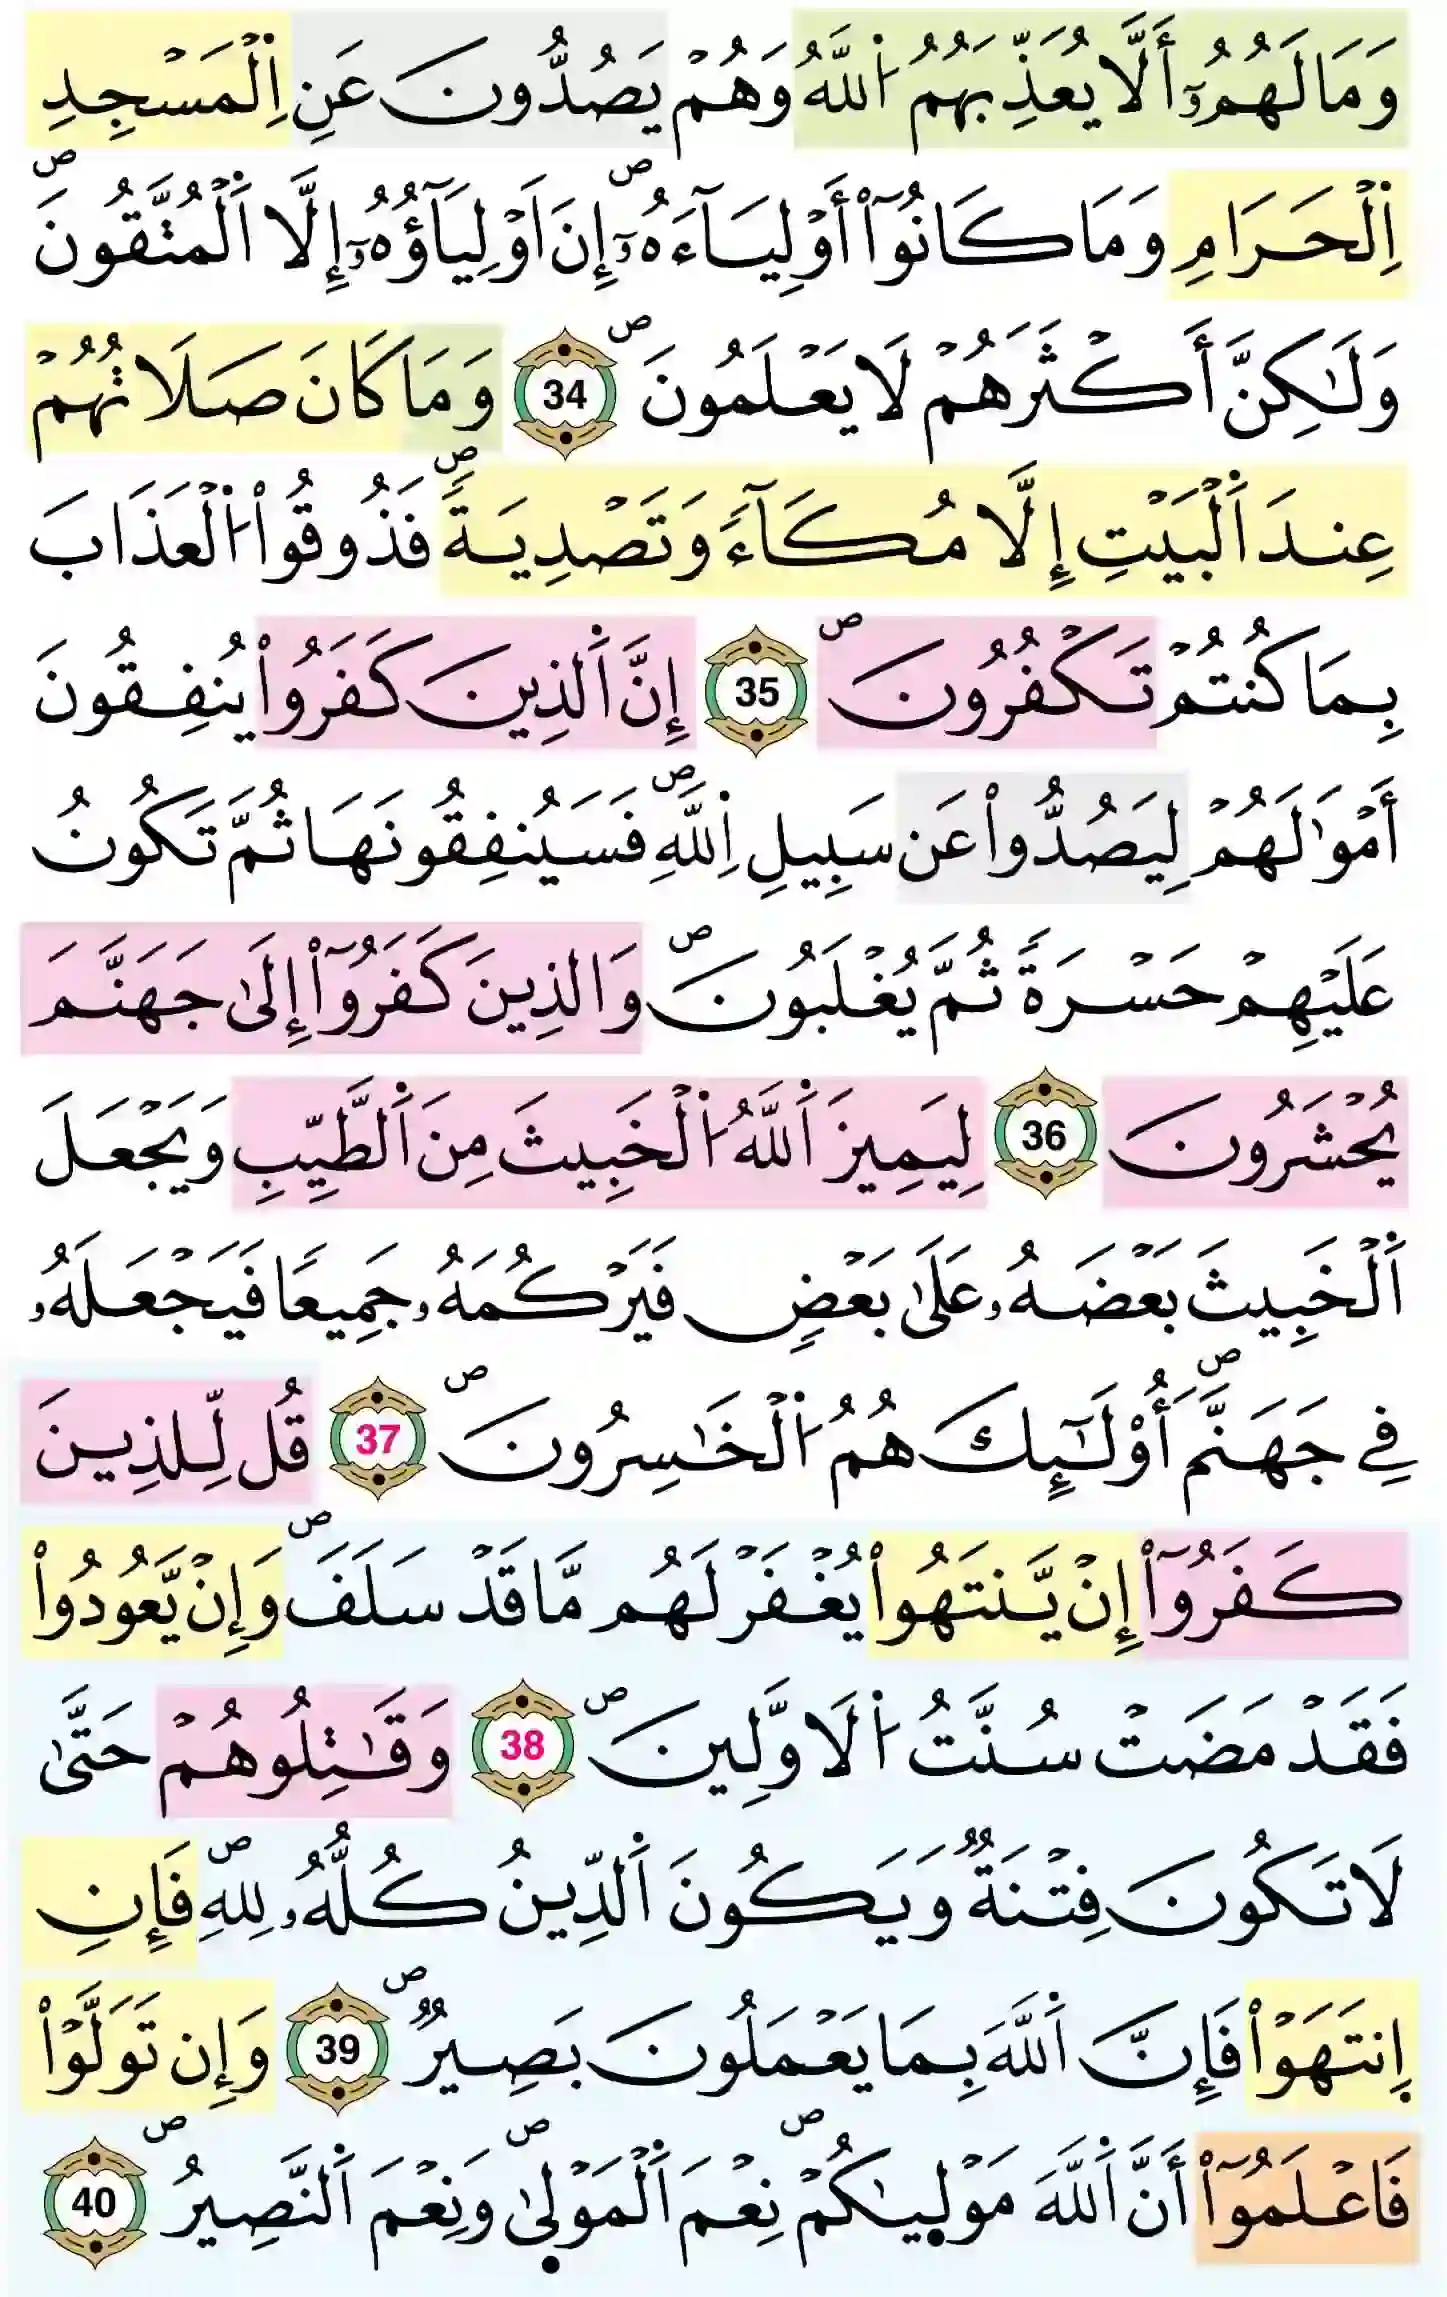 وَمَا لَهُمُۥٓ أَلَّا يُعَذِّبَهُمُ اُ۬للَّهُ وَهُمْ يَصُدُّونَ عَنِ اِ۬لْمَسْجِدِ
اِ۬لْحَرَامِ وَمَا كَانُوٓاْ أَوْلِيَآءَهُۥٓ ۖ إِنَ اَوْلِيَآؤُهُۥٓ إِلَّا اَ۬لْمُتَّقُونَ ۖ
وَلَٰكِنَّ أَكْثَرَهُمْ لَا يَعْلَمُونَ ۖ 34 وَمَا كَانَ صَلَاتُهُمْ
عِندَ اَ۬لْبَيْتِ إِلَّا مُكَآءٗ وَتَصْدِيَةٗ ۖ فَذُوقُواْ اُ۬لْعَذَابَ
بِمَا كُنتُمْ تَكْفُرُونَ ۖ 35 إِنَّ اَ۬لذِينَ كَفَرُواْ يُنفِقُونَ
أَمْوَٰلَهُمْ لِيَصُدُّواْ عَن سَبِيلِ اِ۬للَّهِ ۖ فَسَيُنفِقُونَهَا ثُمَّ تَكُونُ
عَلَيْهِمْ حَسْرَةٗ ثُمَّ يُغْلَبُونَ ۖ وَالذِينَ كَفَرُوٓاْ إِلَىٰ جَهَنَّمَ
يُحْشَرُونَ 36 لِيَمِيزَ اَ۬للَّهُ اُ۬لْخَبِيثَ مِنَ اَ۬لطَّيِّبِ وَيَجْعَلَ
اَ۬لْخَبِيثَ بَعْضَهُۥ عَلَىٰ بَعْضٖ فَيَرْكُمَهُۥ جَمِيعاٗ فَيَجْعَلَهُۥ
فِي جَهَنَّمَ ۖ أُوْلَٰٓئِكَ هُمُ اُ۬لْخَٰسِرُونَ ۖ 37 قُل لِّلذِينَ
كَفَرُوٓاْ إِنْ يَّنتَهُواْ يُغْفَرْ لَهُم مَّا قَدْ سَلَفَ ۖ وَإِنْ يَّعُودُواْ
فَقَدْ مَضَتْ سُنَّتُ اُ۬لَاوَّلِينَ ۖ 38 وَقَٰتِلُوهُمْ حَتَّىٰ
لَا تَكُونَ فِتْنَةٞ وَيَكُونَ اَ۬لدِّينُ كُلُّهُۥ لِلهِ ۖ فَإِنِ
اِ۪نتَهَوْاْ فَإِنَّ اَ۬للَّهَ بِمَا يَعْمَلُونَ بَصِيرٞ ۖ 39 وَإِن تَوَلَّوْاْ
فَاعْلَمُوٓاْ أَنَّ اَ۬للَّهَ مَوْلَيٰكُمْ ۖ نِعْمَ اَ۬لْمَوْلَىٰ ۖ وَنِعْمَ اَ۬لنَّصِيرُ ۖ 40